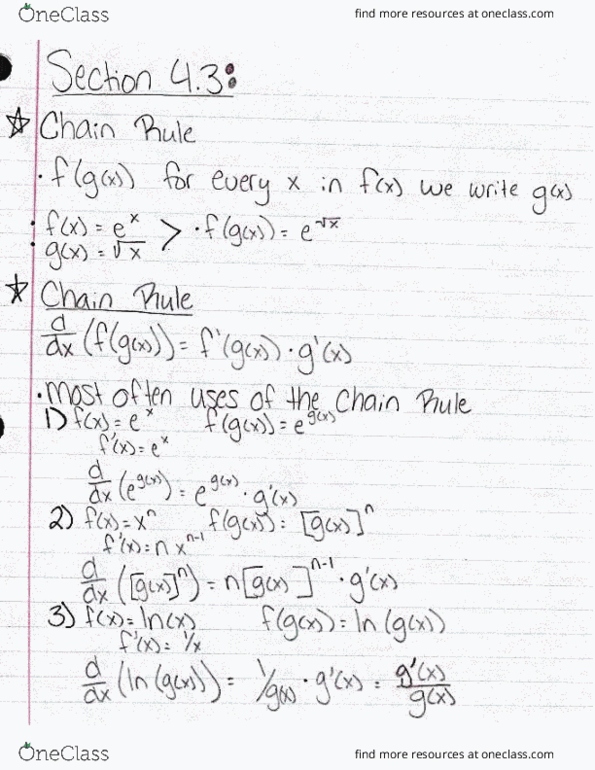 OneClass
find more resources at oneclass.com
Section 4.3:
☆ Chain Rule
· f(g(x)) for every x in f(x) we write g(x)
· f(x) = e^x > · f(g(x)) = e^√x
· g(x) = √x
☆ Chain Rule
d/dx (f(g(x))) = f'(g(x)) · g'(x)
· Most often uses of the Chain Rule
1) f(x) = e^x f(g(x)) = e^g(x)
f'(x) = e^x
d/dx (e^g(x)) = e^g(x) · g'(x)
2) f(x) = x^n f(g(x)) = [g(x)]^n
f'(x) = n x^n-1
d/dx ([g(x)]^n) = n[g(x)]^n-1 · g'(x)
3) f(x) = ln(x) f(g(x)) = ln(g(x))
f'(x) = 1/x
d/dx (ln(g(x))) = 1/g(x) · g'(x) = g'(x)/g(x)
OneClass
find more resources at oneclass.com